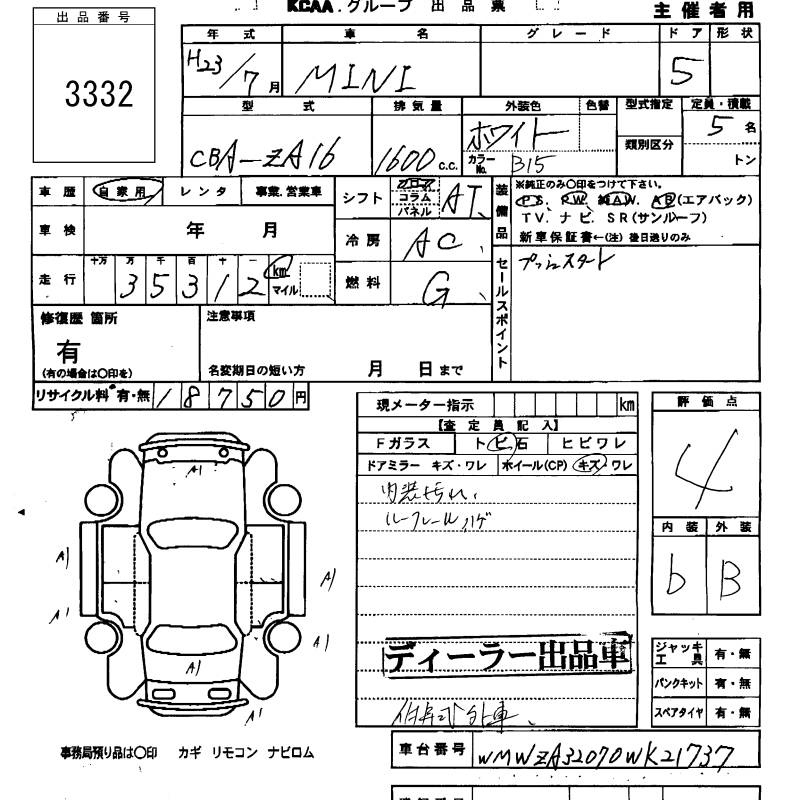 KCAA.グループ 出品票
主催者用
出品番号
3332
年式 車名 グレード ドア 形状
H23/7月 MINI 5
型式 排気量 外装色 色替 型式指定 定員・積載
CBA-ZA16 1600 c.c. ホワイト カラーNo. B15 類別区分 5名 トン
車歴 自家用 レンタ 事業.営業車 シフト フロア コラム パネル AT
装備品 ※純正のみ○印をつけて下さい。
P S. P W. A W. A B(エアバック)
T V. ナビ. S R(サンルーフ)
新車保証書←(注) 後日送りのみ
車検 年 月 冷房 AC
走行 十万 万 千 百 十 一 35312 km マイル 燃料 G
セールスポイント プッシュスタート
修復歴 箇所 注意事項
有
(有の場合は○印を) 名変期日の短い方 月 日まで
リサイクル料 有・無 18750円
現メーター指示 km
【査定員記入】
Fガラス トビ石 ヒビワレ
ドアミラー キズ・ワレ ホイール(CP) キズ・ワレ
内装汚れ
ルーフレールハゲ
評価点
4
内装 外装
b B
A1
A1
A1
A1
A1
A1
A1
ディーラー出品車
ジャッキ工具 有・無
パンクキット 有・無
スペアタイヤ 有・無
事務局預り品は○印 カギ リモコン ナビロム
車台番号 WMWZA32070WK21737